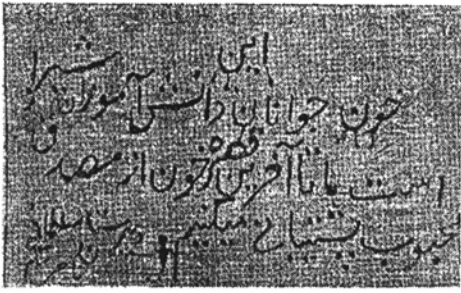 این
خون جوانان دانش آموزان شیراز
است ما تا آخرین قطره خون از مصدق
محبوب پشتیبانی میکنیم